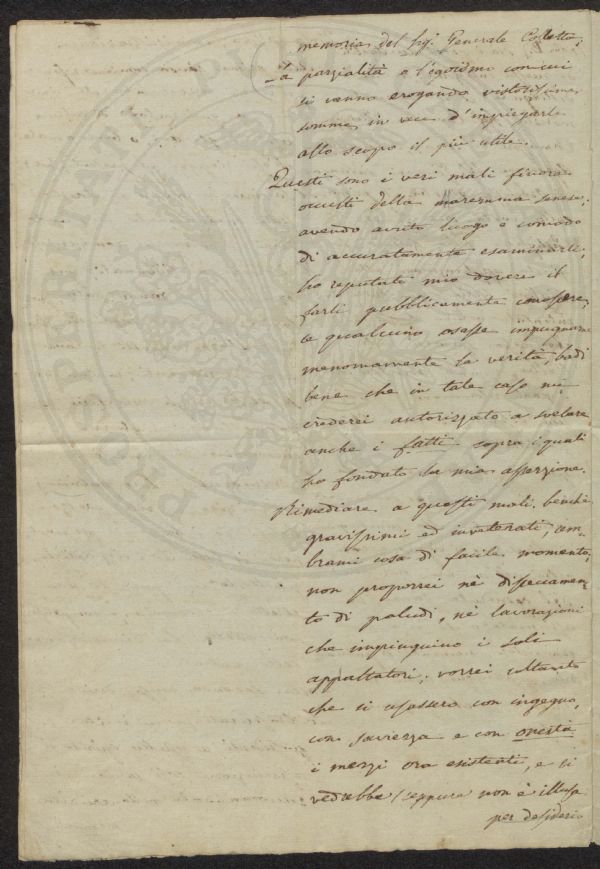 memoria del Sig. Generale Colletta;
— La parzialità e l'egoismo con cui
si vanno erogando vistosissime
somme, in vece d'impiegarle
allo scopo il più utile.
Questi sono i veri mali finora
occulti della maremma senese,
avendo avuto luogo e comodo
di accuratamente esaminarli,
ho reputato mio dovere il
farli pubblicamente conoscere,
se qualcuno osasse impugnarne
menomamente la verità, badi
bene che in tale caso mi
crederei autorizzato a svelare
anche i fatti sopra i quali
ho fondato la mia asserzione.
Rimediare a questi mali, benchè
gravissimi ed inveterati, sem-
brami cosa di facile momento,
non proporrei nè disseccamen-
to di paludi, nè lavorazioni
che impinguino i soli
appaltatori; vorrei soltanto
che si usassero con ingegno,
con saviezza e con onestà
i mezzi ora esistenti, e si
vedrebbe (seppure non è illusa
per desiderio
PROSPERITATI